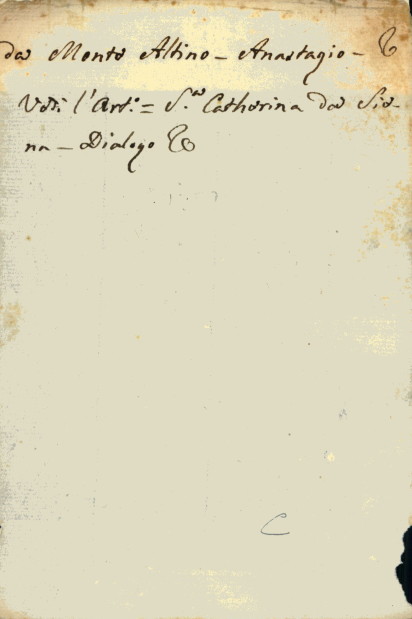 da Monte Altino - Anastagio -
Vedi l'Art.º = S.ª Catherina da Sie-
na - Dialogo &
C